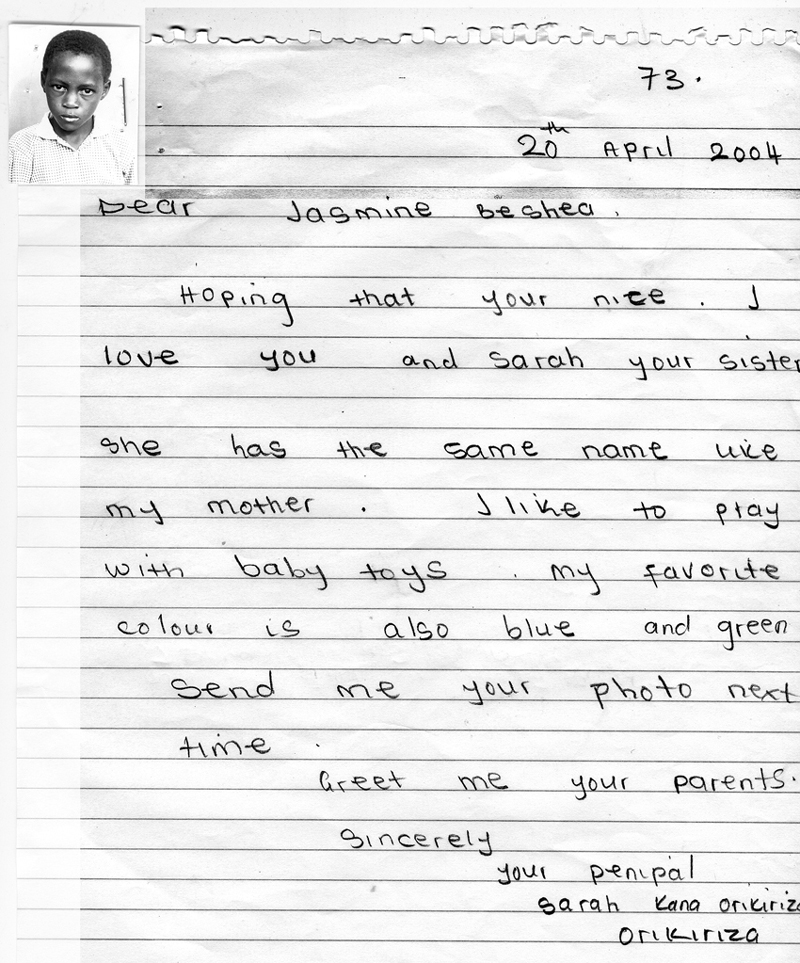 73.
20th April 2004
Dear Jasmine Beshea.
Hoping that your nice. I
love you and Sarah your sister
she has the same name like
my mother. I like to play
with baby toys. My favorite
colour is also blue and green
Send me your photo next
time.
Greet me your parents.
Sincerely
your penipal
Sarah Kana Orikiriza
Orikiriza